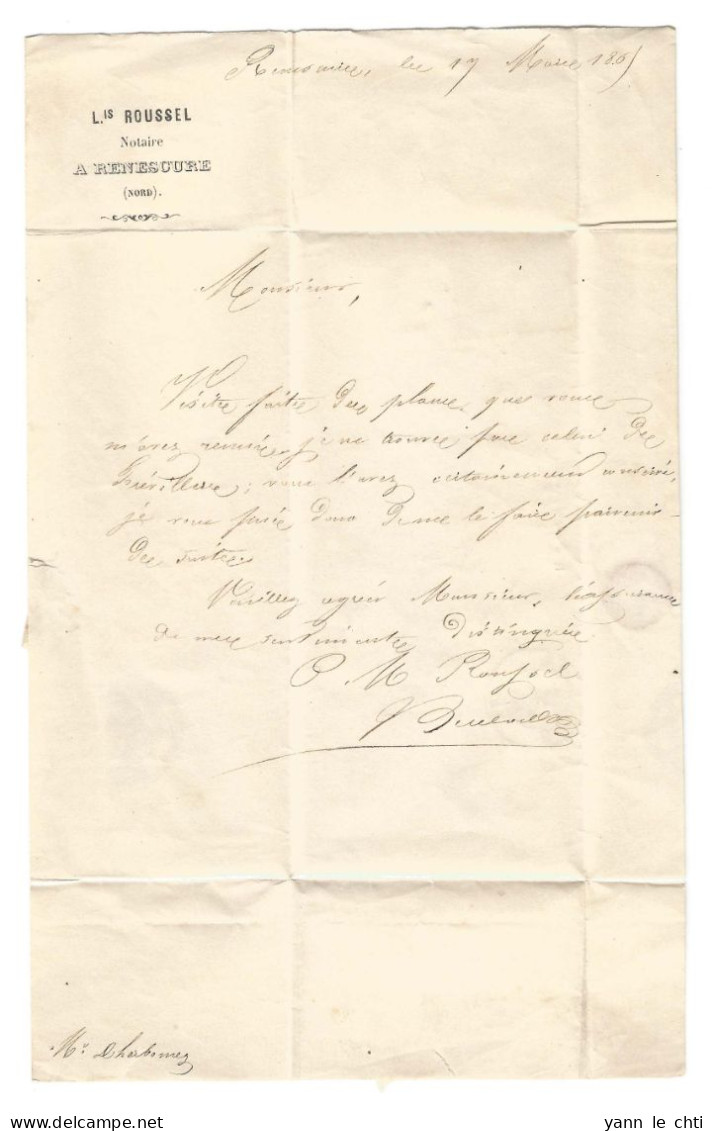 Renescure, le 17 Mars 1865
L.is ROUSSEL
Notaire
A RENESCURE
(NORD).
Monsieur,
Visite faite des plans que vous
m'avez remis, je ne trouve pas celui de
; vous l'avez certainement conservé,
je vous prie donc de me le faire parvenir
de suite.
Veuillez agréer Monsieur, l'assurance
de mes sentiments distingués.
P. M. Roussel
Mr. Delabomez
yann le chti